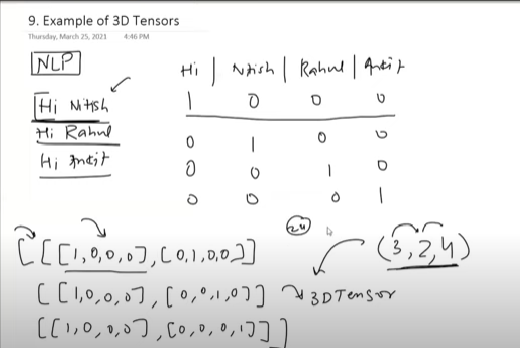 9. Example of 3D Tensors
Thursday, March 25, 2021 4:46 PM
NLP
Hi | Nitish | Rahul | Ankit
Hi Nitish 1 0 0 0
Hi Rahul 0 1 0 0
Hi Ankit 0 0 1 0
0 0 0 1
24
[[[1,0,0,0],[0,1,0,0]] (3,2,4)
[[1,0,0,0],[0,0,1,0]] 3D Tensor
[[1,0,0,0],[0,0,0,1]]]